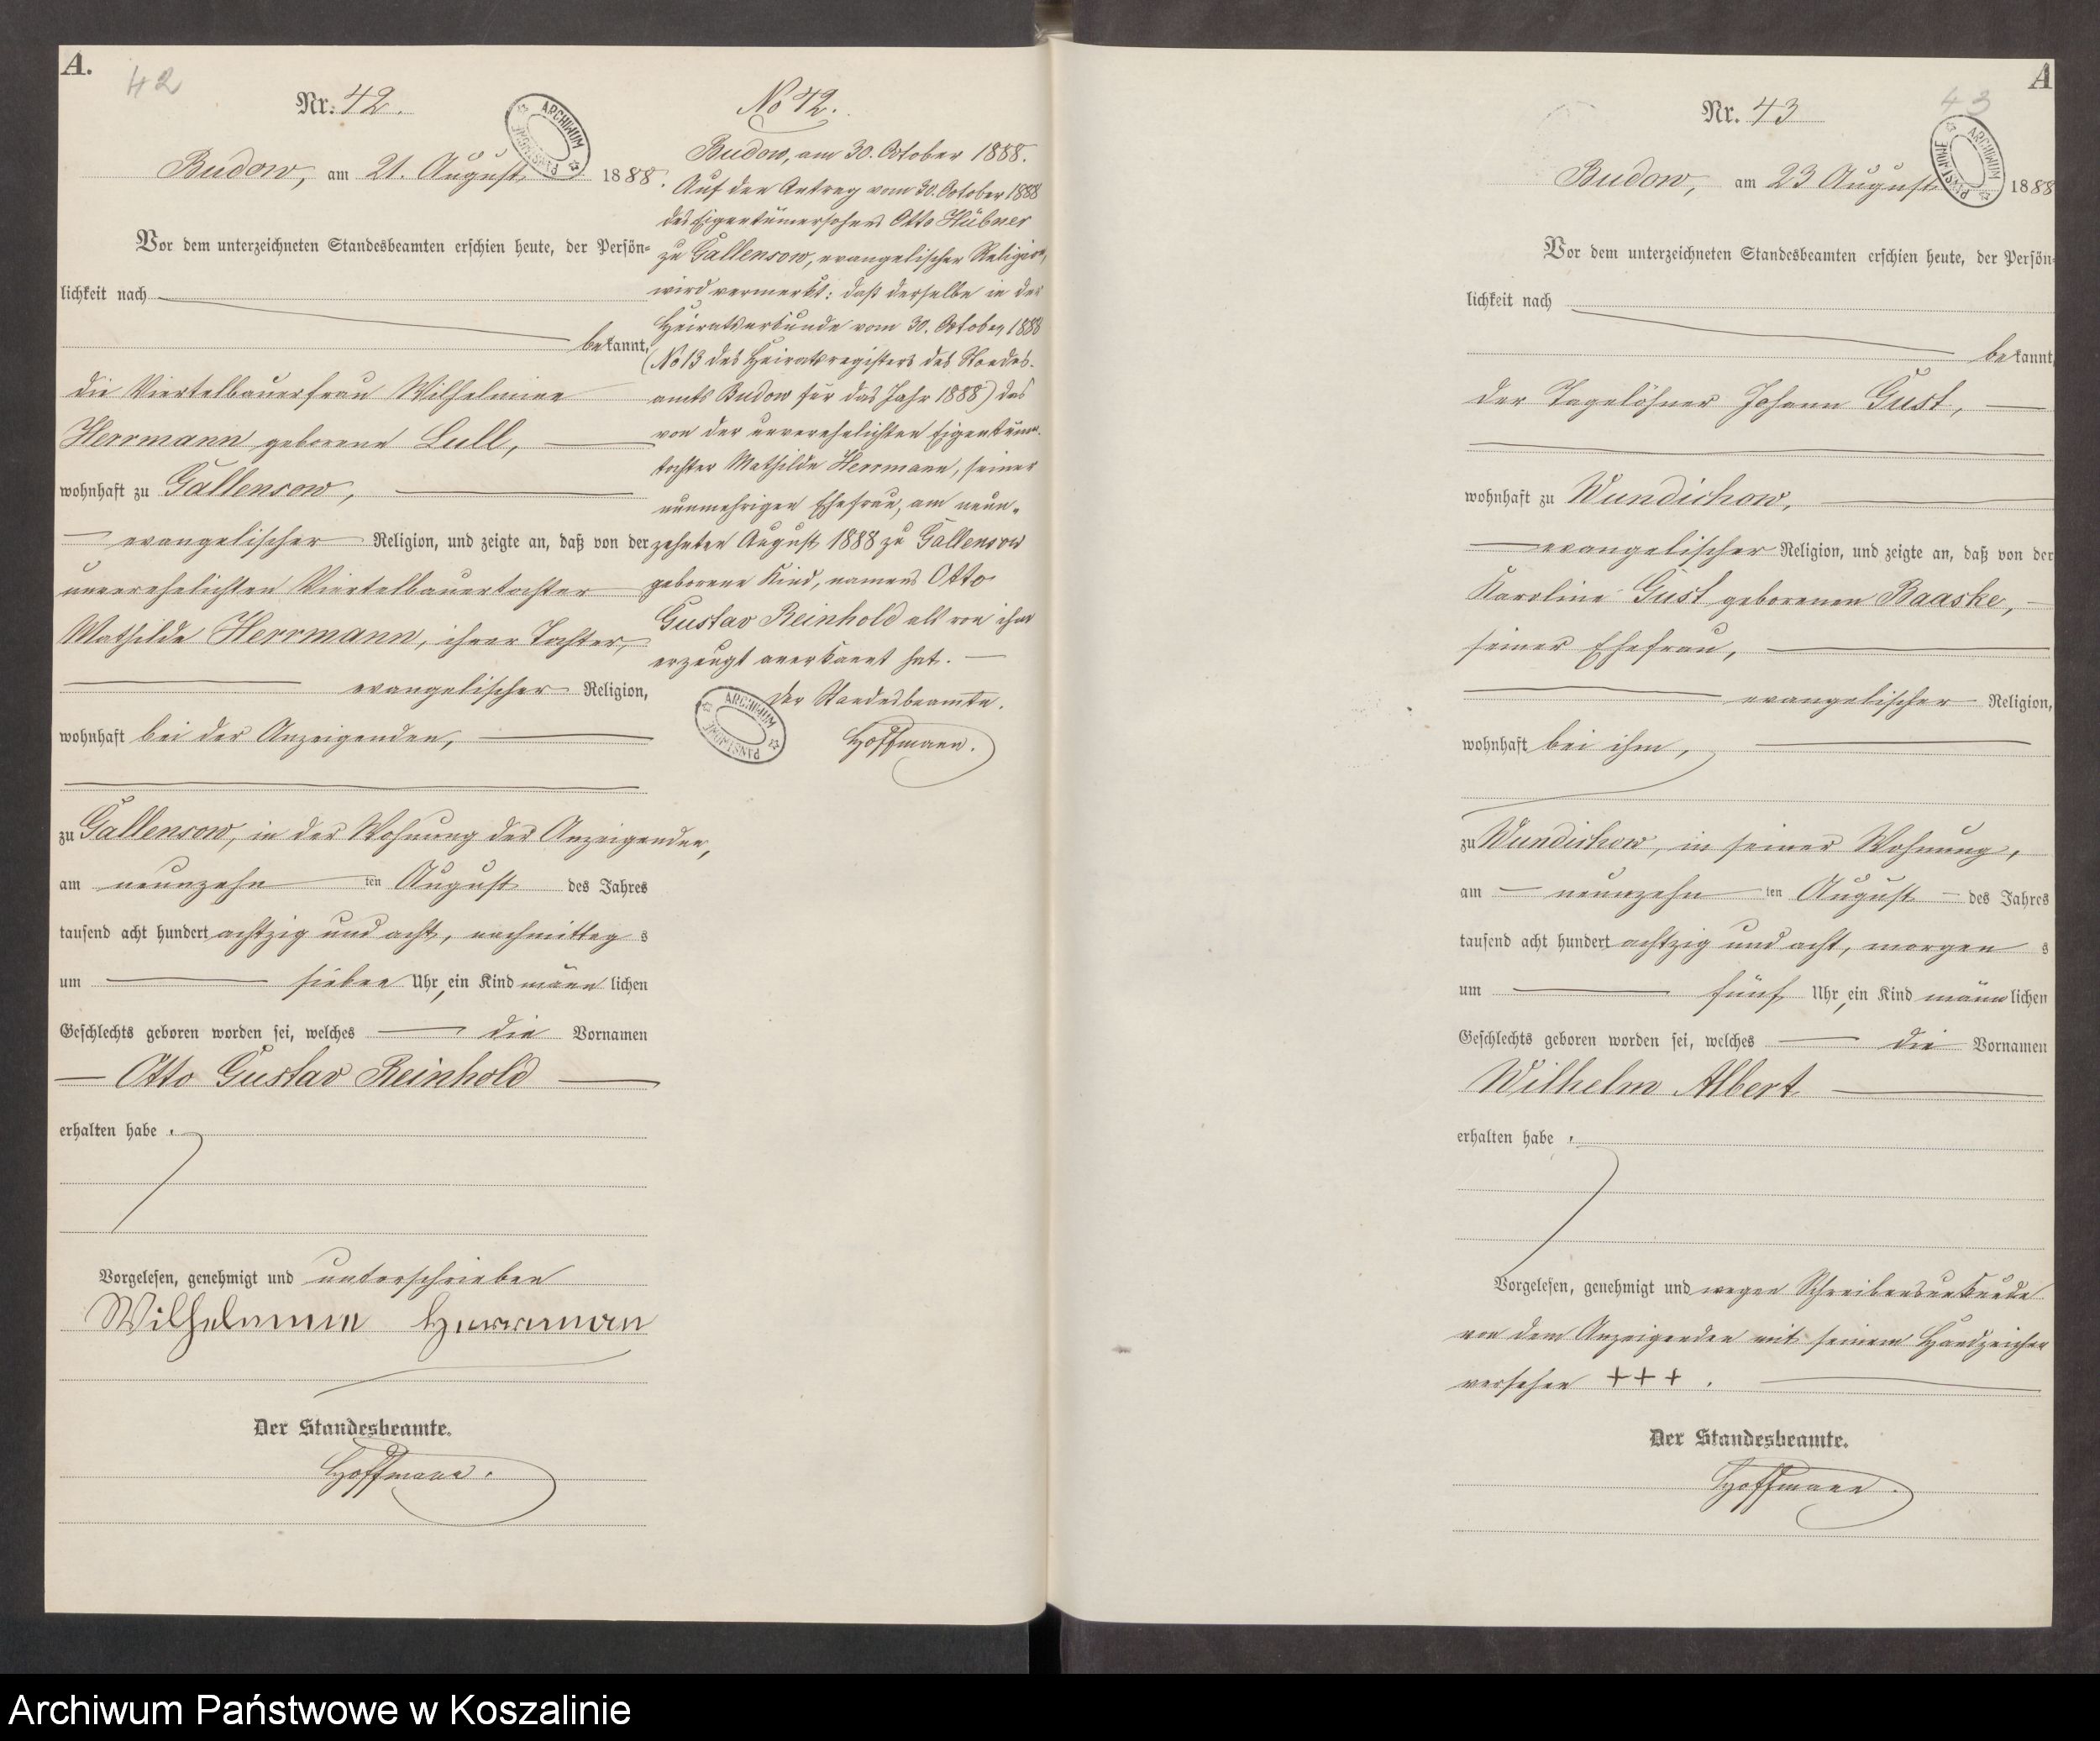 A.
42
Nr. 42.
ARCHIWUM PAŃSTWOWE
Budow, am 21. August 1888.
Vor dem unterzeichneten Standesbeamten erschien heute, der Persön-
lichkeit nach
bekannt,
die Viertelbauerfrau Wilhelmine
Herrmann geborene Lull,
wohnhaft zu Gallensow,
evangelischer Religion, und zeigte an, daß von der
unverehelichten Viertelbauertochter
Mathilde Herrmann, ihrer Tochter,
evangelischer Religion,
wohnhaft bei der Anzeigenden,
zu Gallensow, in der Wohnung der Anzeigenden,
am neunzehn ten August des Jahres
tausend acht hundert achtzig und acht, nachmittag s
um sieben Uhr, ein Kind männ lichen
Geschlechts geboren worden sei, welches die Vornamen
Otto Gustav Reinhold
erhalten habe.
Vorgelesen, genehmigt und unterschrieben
Wilhelmine Herrman
Der Standesbeamte.
Hoffmann.
No 42.
Budow, am 30. October 1888.
Auf den Antrag vom 30. October 1888
des Eigentümersohnes Otto Hübner
zu Gallensow, evangelischer Religion,
wird vermerkt: daß derselbe in der
Heiratsurkunde vom 30. October 1888
(No 13 des Heiratsregisters des Standes-
amts Budow für das Jahr 1888) das
von der unverehelichten Eigentüm.
tochter Mathilde Herrmann, seiner
nunmehrigen Ehefrau, am neun-
zehnten August 1888 zu Gallensow
geborene Kind, namens Otto
Gustav Reinhold als von ihm
erzeugt anerkannt hat.
Der Standesbeamte.
ARCHIWUM PAŃSTWOWE
Hoffmann.
A
43
Nr. 43
ARCHIWUM PAŃSTWOWE
Budow, am 23 August 1888
Vor dem unterzeichneten Standesbeamten erschien heute, der Persön-
lichkeit nach
bekannt,
der Tagelöhner Johann Gust,
wohnhaft zu Wundichow,
evangelischer Religion, und zeigte an, daß von der
Karoline Gust geborenen Baaske,
seiner Ehefrau,
evangelischer Religion,
wohnhaft bei ihm,
zu Wundichow, in seiner Wohnung,
am neunzehn ten August des Jahres
tausend acht hundert achtzig und acht, morgen s
um fünf Uhr, ein Kind männ lichen
Geschlechts geboren worden sei, welches die Vornamen
Wilhelm Albert
erhalten habe.
Vorgelesen, genehmigt und wegen Schreibensunkunde
von dem Anzeigenden mit seinem Handzeichen
versehen +++.
Der Standesbeamte.
Hoffmann.
Archiwum Państwowe w Koszalinie